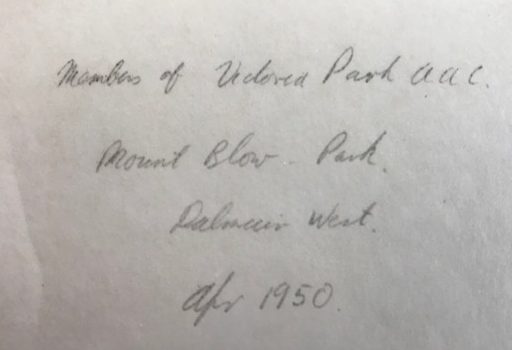 Members of Victoria Park AAC.
Mount Blow Park.
Dalmuir West.
Apr 1950.